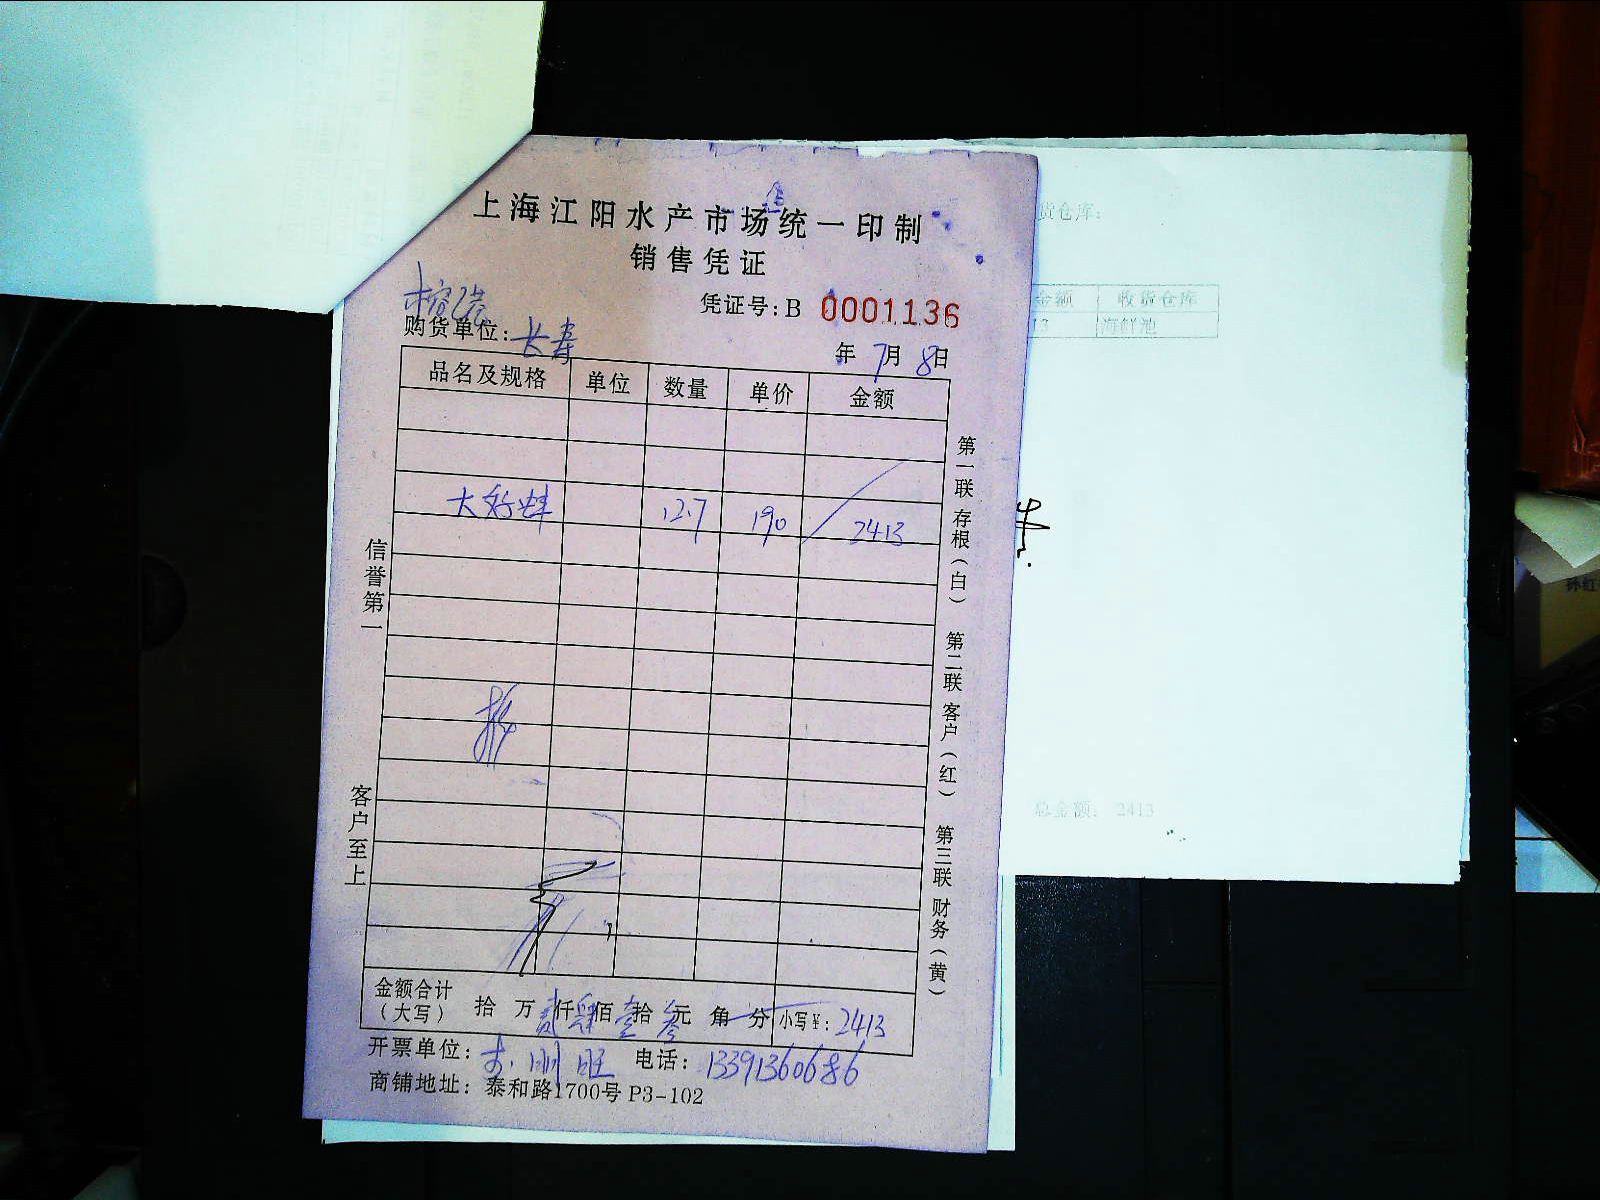 上海江阳水产市场统一印制
销售凭证
凭证号:B 0001136
购货单位: 长寿
年 7月 8日
品名及规格 单位 数量 单价 金额
12.7 190 2413
信誉第一
客户至上
第一联 存根(白) 第二联 客户(红) 第三联 财务(黄)
金额合计
(大写) 拾 万 贰仟肆佰壹拾叁元 角 分 小写¥: 2413
开票单位: 电话: 13391360686
商铺地址: 泰和路1700号 P3-102
货仓库:
金额 收货仓库
13 海鲜池
总金额: 2413
孙红